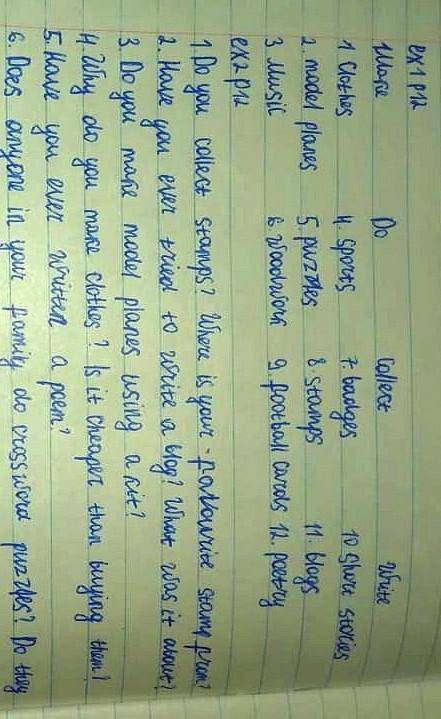 ex1 p12
Make Do Collect Write
1 Clothes 4. sports 7. budges 10 Short stories
2. model planes 5. puzzles 8. stamps 11. blogs
3 Music 6. Woodwork 9. football cards 12. poetry
ex2 p12
1. Do you collect stamps? Where is your stamp from?
2. Have you ever tried to write a blog? What was it about?
3. Do you make model planes using a kit?
4 Why do you make clothes? Is it cheaper than buying them?
5. Have you ever written a poem?
6. Does anyone in your family do crossword puzzles? Do they